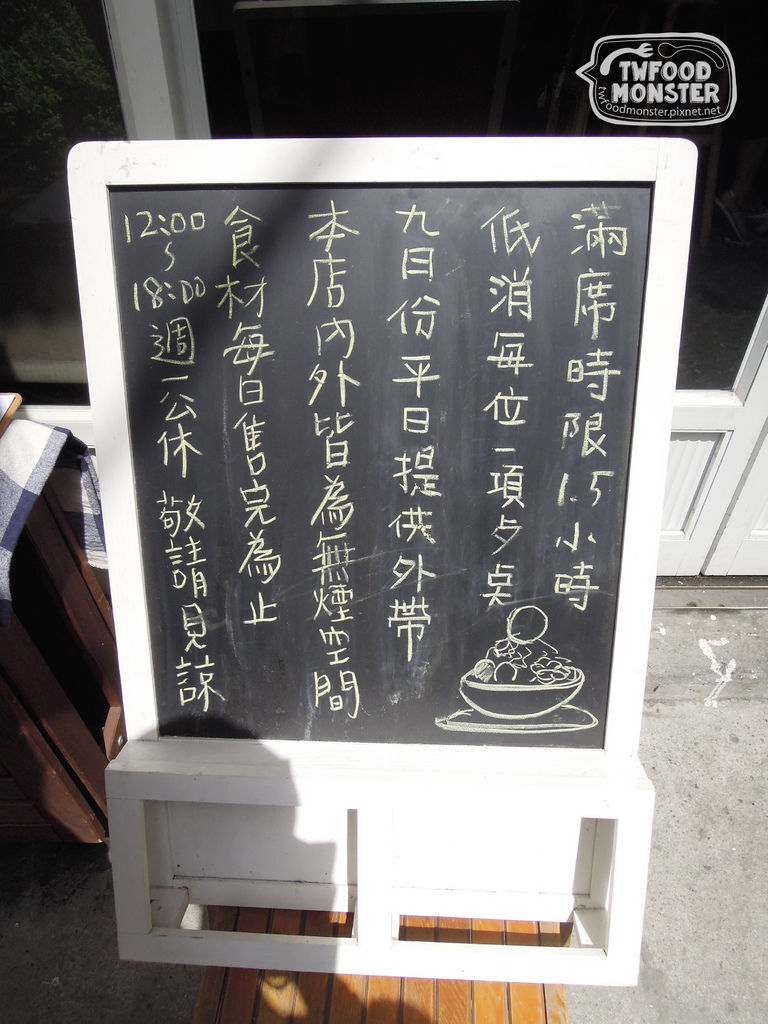 滿席時限1.5小時
低消每位一項夕吳
九月份平日提供外帶
本店內外皆為無煙空間
食材每日售完為止
12:00
~
18:00 週一公休 敬請見諒
TWFOOD
MONSTER
twfoodmonster.pixnet.net